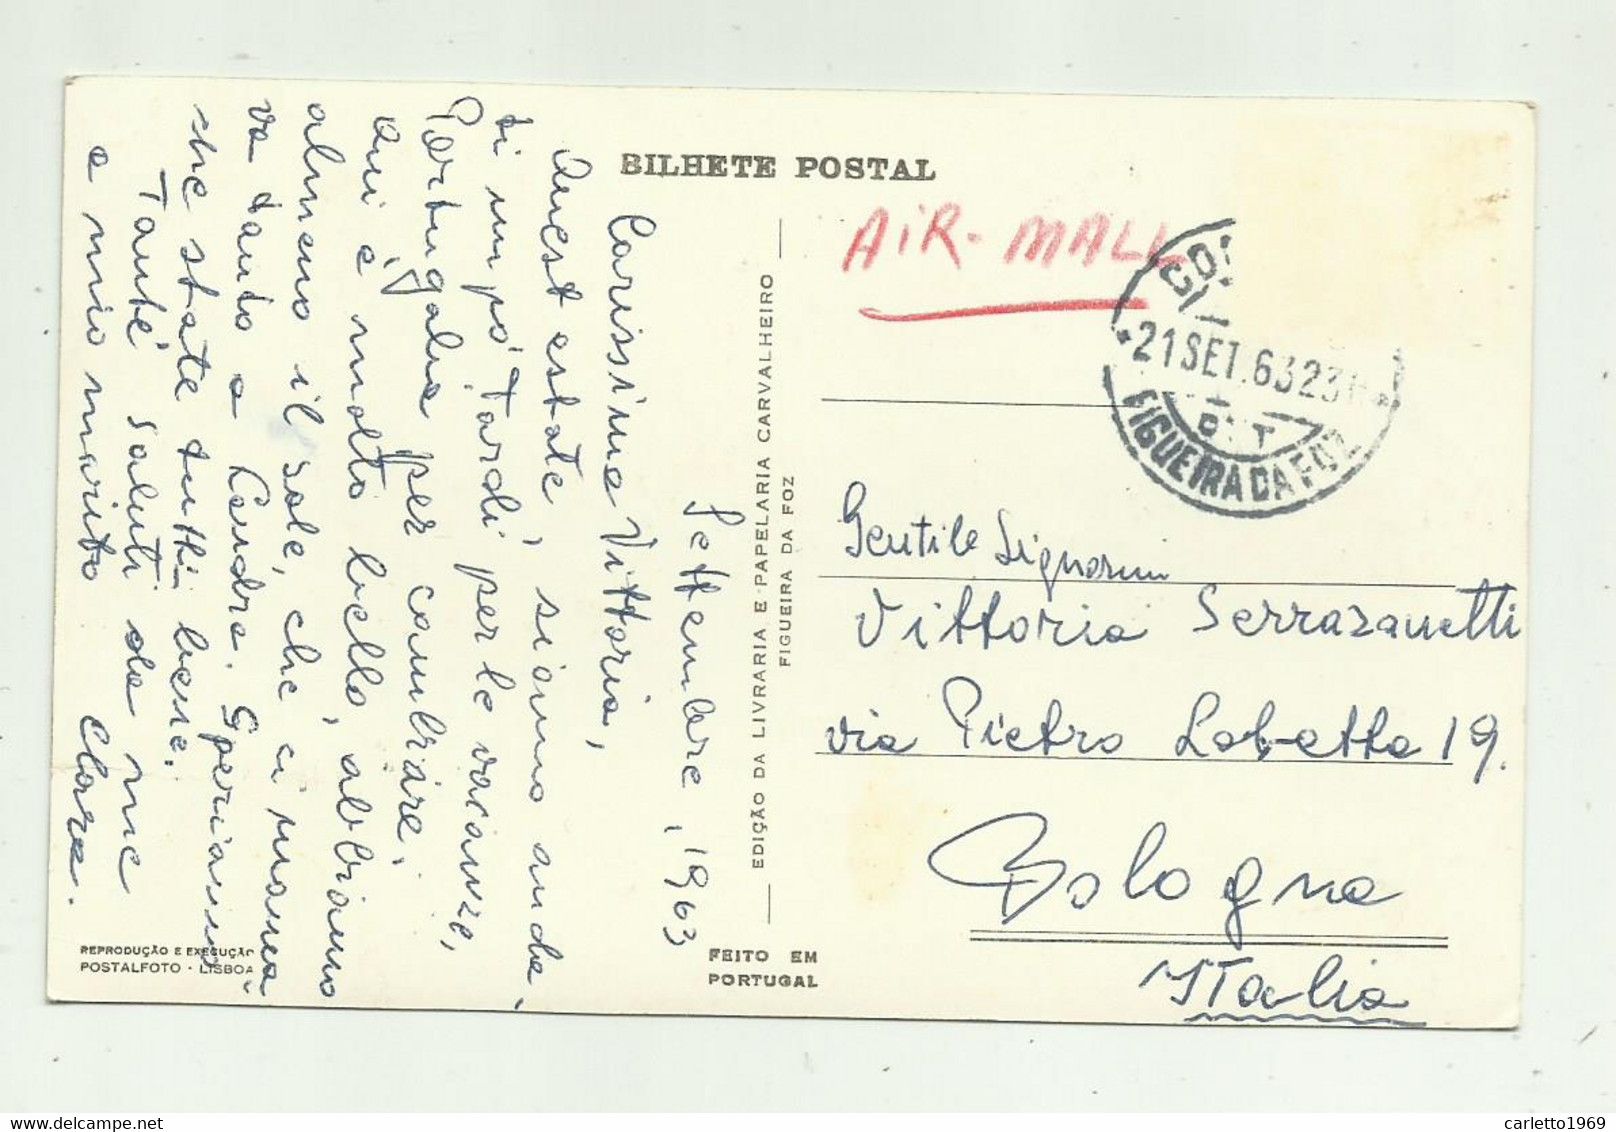 BILHETE POSTAL
AIR-MAIL
21 SET. 63 23
FIGUEIRA DA FOZ
Settembre, 1963
Carissime Vittoria,
Quest'estate, siamo anda,
ti un pò tardi per le vacanze,
Portugalia per cambiare.
Qui è molto bello, abbiamo
almeno il sole, che ci manca
va tanto a Londra. Speriamo
che state tutti bene.
Tanté saluti da me
e mio marito Clara.
EDIÇÃO DA LIVRARIA E PAPELARIA CARVALHEIRO
FIGUEIRA DA FOZ
Gentile Signorina
Vittoria Serrazanetti
via Pietro Lobetta 19.
Bologna
Italia
REPRODUÇÃO E EXECUÇÃO
POSTALFOTO - LISBOA
FEITO EM
PORTUGAL
carletto1969